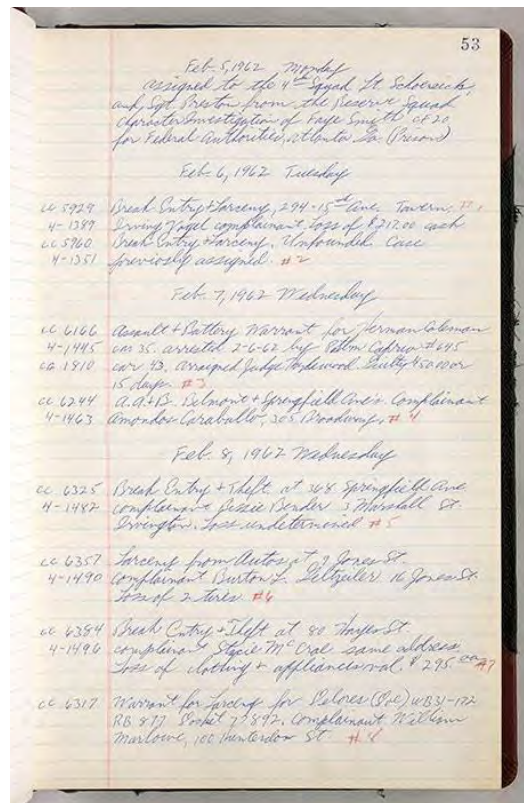 53
Feb. 5, 1962 Monday
assigned to the 4th Squad, Lt. Schoersick,
and Sgt Breston from the Reserve Squad
Character Investigation of Faye Smith CF 20
for Federal Authorities, Atlanta Ga. (Prison)
Feb. 6, 1962 Tuesday
cc 5929 Break Entry + Larceny, 294-15th Ave. Tavern. #1
4-1389 Irving Vogel complainant. Loss of $217.00 cash
cc 5960 Break Entry + Larceny. Unfounded. Case
4-1351 previously assigned. #2
Feb. 7, 1962 Wednesday
cc 6166 Assault + Battery Warrant for Herman Coleman
4-1445 cm 35. arrested 2-6-62 by Patlm Caprio #645
ca 1810 car 43, arraigned Judge Guilty $50.00 or
15 days. #3
cc 6244 A.A.+B. Belmont + Springfield Ave's. Complainant
4-1463 Amondos Caraballo, 305 Broadway, #4
Feb. 8, 1962 Wednesday
cc 6325 Break Entry + Theft at 368 Springfield Ave.
4-1482 complainant Jessie Bender 3 Marshall St.
Irvington. Loss undetermined #5
cc 6357 Larceny from Autos at 9 Jones St.
4-1490 Complainant Burton L. 16 Jones St.
Loss of 2 tires. #6
cc 6384 Break Entry + Theft at 80 Hayes St.
4-1496 complainant McCrae same address
Loss of clothing + appliances val. $295.00 #7
cc 6317 Warrant for Larceny for Delores (Doe) WB31-172
RB 877 Docket 77892, Complainant William
Marlowe, 100 Hunterdon St. #8